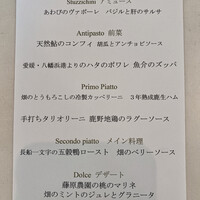 Stuzzichini アミューズ
あわびのヴァポーレ バジルと肝のサルサ
Antipasto 前菜
天然鮎のコンフィ 胡瓜とアンチョビソース
愛媛・八幡浜港よりのハタのポワレ 魚介のズッパ
Primo Piatto
畑のとうもろこしの冷製カッペリーニ 3年熟成鹿生ハム
手打ちタリオリーニ 鹿野地鶏のラグーソース
Secondo piatto メイン料理
長船一文字の五穀鴨ロースト 畑のベリーソース
Dolce デザート
藤原農園の桃のマリネ
畑のミントのジュレとグラニータ